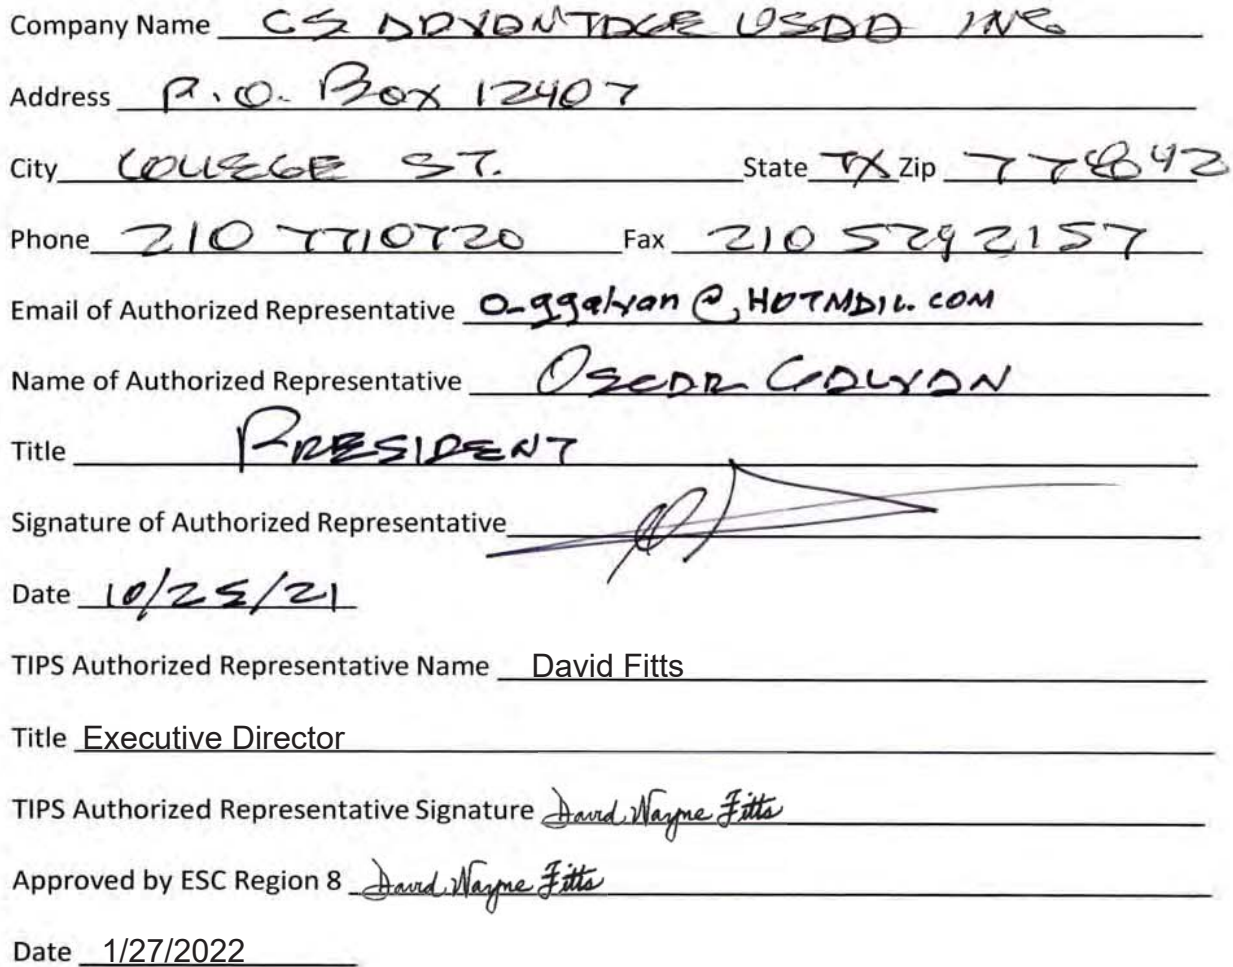 Company Name CS ADVANTAGE USAA INC
Address P.O. Box 12407
City COLLEGE ST. State TX Zip 77842
Phone 210 7710720 Fax 210 5792157
Email of Authorized Representative O_ggalvan@HOTMAIL.COM
Name of Authorized Representative OSCAR GALVAN
Title PRESIDENT
Signature of Authorized Representative
Date 10/25/21
TIPS Authorized Representative Name David Fitts
Title Executive Director
TIPS Authorized Representative Signature David Wayne Fitts
Approved by ESC Region 8 David Wayne Fitts
Date 1/27/2022